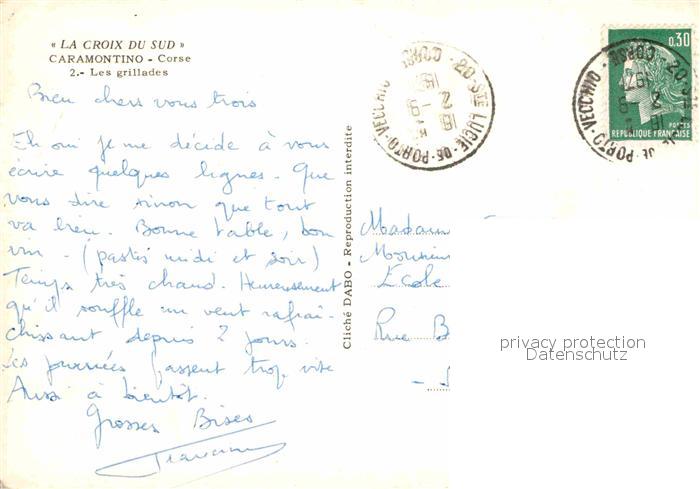 « LA CROIX DU SUD »
CARAMONTINO - Corse
2.- Les grillades
Bien chers vous trois
Eh oui je me décide à vous
écrire quelques lignes. Que
vous dire sinon que tout
va bien. Bonne table, bon
vin - (pastis midi et soir)
Temps très chaud. Heureusement
qu'il souffle un vent rafraî-
chissant depuis 2 jours.
Les journées passent trop vite
Aussi à bientôt.
Grosses Bises
Cliché DABO - Reproduction interdite
20 - STE LUCIE - DE - PORTO - VECCHIO
CORSE
0,30
POSTES
REPUBLIQUE FRANÇAISE
20 - STE
DE - PORTO - VECCHIO
CORSE
Madam
Monsieur
École
Rue B
privacy protection
Datenschutz